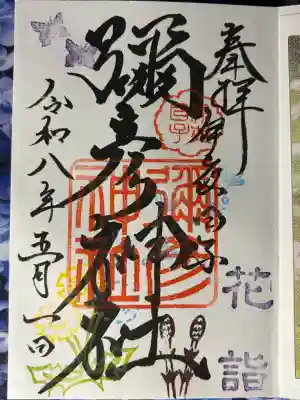 奉拝
花詣
彌彦神社
彌彦
神社
令和八年五月一日